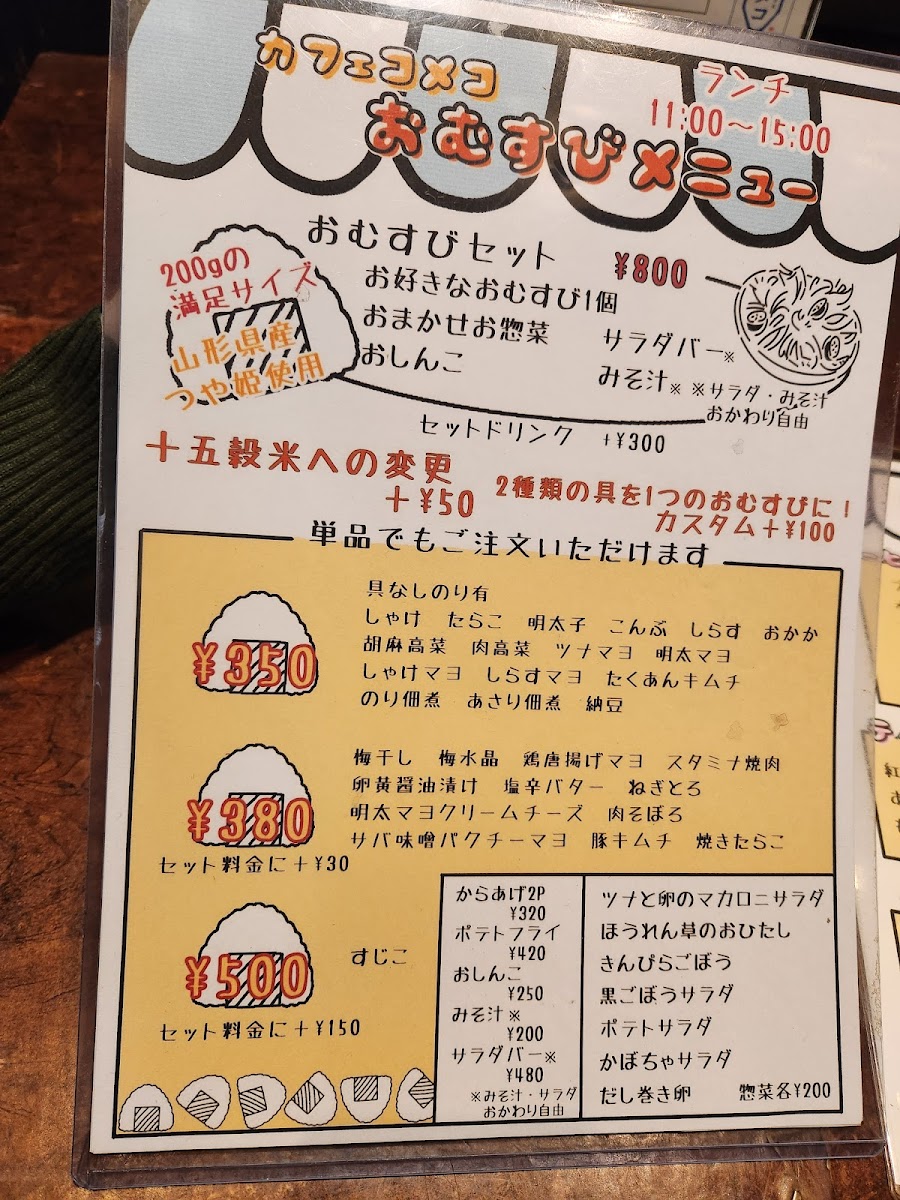 カフェコメコ
おむすびメニュー
ランチ
11:00～15:00
200gの
満足サイズ
山形県産
つや姫使用
おむすびセット ¥800
お好きなおむすび1個
おまかせお惣菜
おしんこ
サラダバー※
みそ汁※
※サラダ・みそ汁
おかわり自由
セットドリンク +¥300
十五穀米への変更
+¥50
2種類の具を1つのおむすびに！
カスタム+¥100
単品でもご注文いただけます
¥350
具なしのり有
しゃけ たらこ 明太子 こんぶ しらす おかか
胡麻高菜 肉高菜 ツナマヨ 明太マヨ
しゃけマヨ しらすマヨ たくあんキムチ
のり佃煮 あさり佃煮 納豆
¥380
セット料金に+¥30
梅干し 梅水晶 鶏唐揚げマヨ スタミナ焼肉
卵黄醤油漬け 塩辛バター ねぎとろ
明太マヨクリームチーズ 肉そぼろ
サバ味噌パクチーマヨ 豚キムチ 焼きたらこ
¥500
セット料金に+¥150
すじこ
からあげ2P
¥320
ポテトフライ
¥420
おしんこ
¥250
みそ汁※
¥200
サラダバー※
¥480
※みそ汁・サラダ
おかわり自由
ツナと卵のマカロニサラダ
ほうれん草のおひたし
きんぴらごぼう
黒ごぼうサラダ
ポテトサラダ
かぼちゃサラダ
だし巻き卵 惣菜各¥200